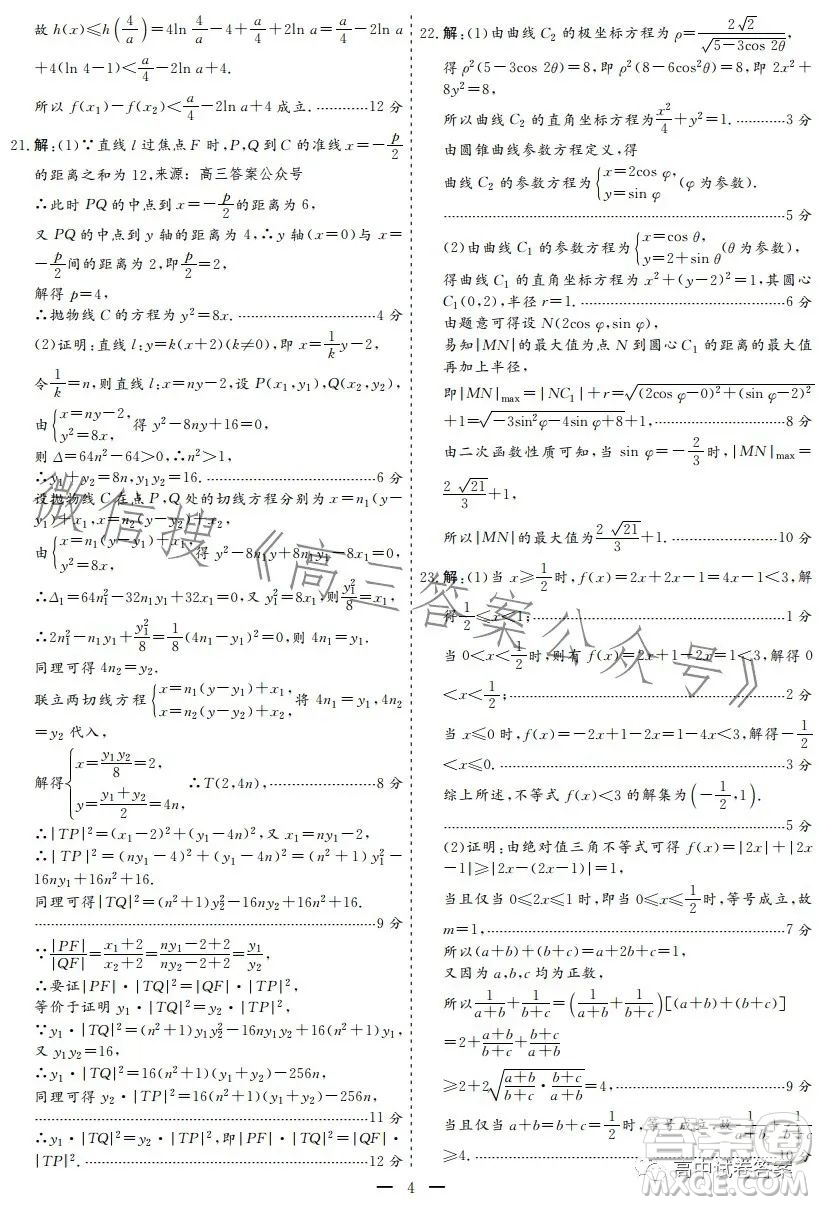 故 h(x)≤h(4/a)=4ln 4/a-4+a/4+2ln a=a/4-2ln a
+4(ln 4-1)<a/4-2ln a+4.
所以 f(x₁)-f(x₂)<a/4-2ln a+4 成立.…………12 分
21.解:(1)∵直线 l 过焦点 F 时,P,Q 到 C 的准线 x=-p/2
的距离之和为 12,来源:高三答案公众号
∴此时 PQ 的中点到 x=-p/2的距离为 6,
又 PQ 的中点到 y 轴的距离为 4,∴y 轴(x=0)与 x=
-p/2间的距离为 2,即p/2=2,
解得 p=4,
∴抛物线 C 的方程为 y²=8x.…………4 分
(2)证明:直线 l:y=k(x+2)(k≠0),即 x=1/k y-2,
令1/k=n,则直线 l:x=ny-2,设 P(x₁,y₁),Q(x₂,y₂),
由{x=ny-2, y²=8x,得 y²-8ny+16=0,
则 Δ=64n²-64>0,∴n²>1,
∴y₁+y₂=8n,y₁y₂=16.…………6 分
设抛物线 C 在点 P,Q 处的切线方程分别为 x=n₁(y-
y₁)+x₁,x=n₂(y-y₂)+x₂,
由{x=n₁(y-y₁)+x₁, y²=8x,得 y²-8n₁y+8n₁y₁-8x₁=0,
∴Δ₁=64n₁²-32n₁y₁+32x₁=0,又 y₁²=8x₁,则y₁²/8=x₁,
∴2n₁²-n₁y₁+y₁²/8=1/8(4n₁-y₁)²=0,则 4n₁=y₁.
同理可得 4n₂=y₂.
联立两切线方程{x=n₁(y-y₁)+x₁, x=n₂(y-y₂)+x₂,将 4n₁=y₁,4n₂
=y₂ 代入,
解得{x=y₁y₂/8=2, y=(y₁+y₂)/2=4n,∴T(2,4n),…………8 分
∴|TP|²=(x₁-2)²+(y₁-4n)²,又 x₁=ny₁-2,
∴|TP|²=(ny₁-4)²+(y₁-4n)²=(n²+1)y₁²-
16ny₁+16n²+16.
同理可得|TQ|²=(n²+1)y₂²-16ny₂+16n²+16.
…………9 分
∵|PF|/|QF|=(x₁+2)/(x₂+2)=(ny₁-2+2)/(ny₂-2+2)=y₁/y₂,
∴要证|PF|·|TQ|²=|QF|·|TP|²,
等价于证明 y₁·|TQ|²=y₂·|TP|²,
∵y₁·|TQ|²=(n²+1)y₁y₂²-16ny₁y₂+16(n²+1)y₁,
又 y₁y₂=16,
∴y₁·|TQ|²=16(n²+1)(y₁+y₂)-256n,
同理可得 y₂·|TP|²=16(n²+1)(y₁+y₂)-256n,
…………11 分
∴y₁·|TQ|²=y₂·|TP|²,即|PF|·|TQ|²=|QF|·
|TP|².…………12 分
22.解:(1)由曲线 C₂ 的极坐标方程为 ρ=2√2/√(5-3cos 2θ),
得 ρ²(5-3cos 2θ)=8,即 ρ²(8-6cos²θ)=8,即 2x²+
8y²=8,
所以曲线 C₂ 的直角坐标方程为x²/4+y²=1.…………3 分
由圆锥曲线参数方程定义,得
曲线 C₂ 的参数方程为{x=2cos φ, y=sin φ(φ为参数).
…………5 分
(2)由曲线 C₁ 的参数方程为{x=cos θ, y=2+sin θ(θ为参数),
得曲线 C₁ 的直角坐标方程为 x²+(y-2)²=1,其圆心
C₁(0,2),半径 r=1.…………6 分
由题意可得设 N(2cos φ,sin φ),
易知|MN|的最大值为点 N 到圆心 C₁ 的距离的最大值
再加上半径,
即|MN|max=|NC₁|+r=√((2cos φ-0)²+(sin φ-2)²)
+1=√(-3sin²φ-4sin φ+8)+1,…………8 分
由二次函数性质可知,当 sin φ=-2/3时,|MN|max=
2√21/3+1,
所以|MN|的最大值为2√21/3+1.…………10 分
23.解:(1)当 x≥1/2时,f(x)=2x+2x-1=4x-1<3,解
得1/2≤x<1;…………1 分
当 0<x<1/2时,则有 f(x)=2x+1-2x=1<3,解得 0
<x<1/2;…………2 分
当 x≤0 时,f(x)=-2x+1-2x=1-4x<3,解得-1/2
<x≤0.…………3 分
综上所述,不等式 f(x)<3 的解集为(-1/2,1).
…………5 分
(2)证明:由绝对值三角不等式可得 f(x)=|2x|+|2x
-1|≥|2x-(2x-1)|=1,
当且仅当 0≤2x≤1 时,即当 0≤x≤1/2时,等号成立,故
m=1,…………7 分
所以(a+b)+(b+c)=a+2b+c=1,
又因为 a,b,c 均为正数,
所以1/(a+b)+1/(b+c)=(1/(a+b)+1/(b+c))[(a+b)+(b+c)]
=2+(a+b)/(b+c)+(b+c)/(a+b)
≥2+2√((a+b)/(b+c)·(b+c)/(a+b))=4,…………9 分
当且仅当 a+b=b+c=1/2时,等号成立,故1/(a+b)+1/(b+c)
≥4.…………10 分
4
微信搜《高三答案公众号》
高中试卷答案
答案圈
MXQE.COM